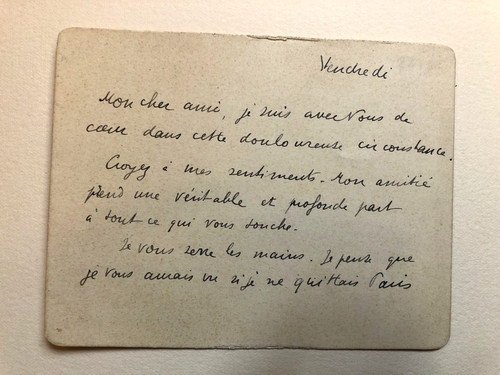 Vendredi
Mon cher ami, je suis avec Vous de
cœur dans cette douloureuse circonstance.
Croyez à mes sentiments. Mon amitié
prend une véritable et profonde part
à tout ce qui vous touche.
Je vous serre les mains. Je pense que
je vous aurais vu si je ne quittais Paris